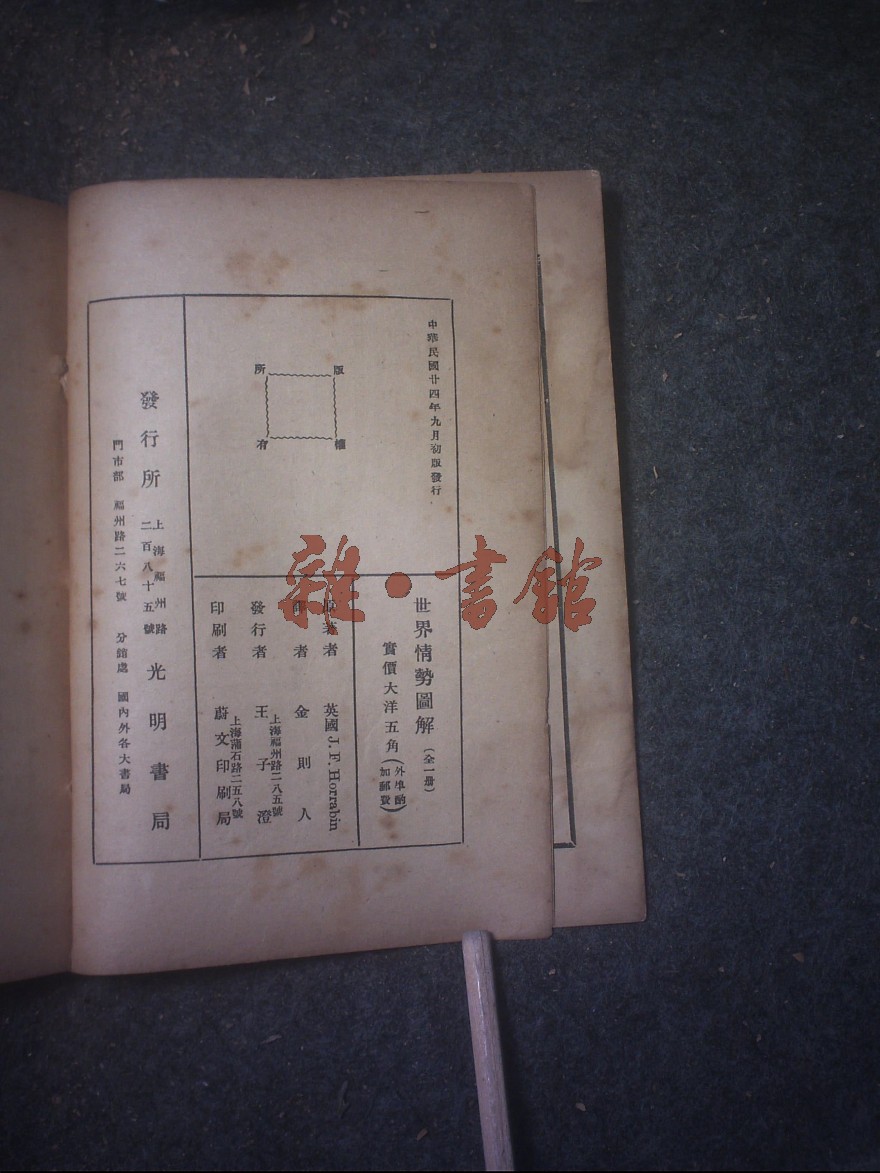 中華民國廿四年九月初版發行
版權所有
世界情勢圖解(全一册)
實價大洋五角(外埠酌加郵費)
原著者 英國 J. F. Horrabin
譯者 金則人
發行者 王子澄
上海福州路二八五號
印刷者 蔚文印刷局
上海蒲石路二五八號
發行所 上海福州路二百八十五號 光明書局
門市部 福州路二六七號 分銷處 國內外各大書局
雜·書館